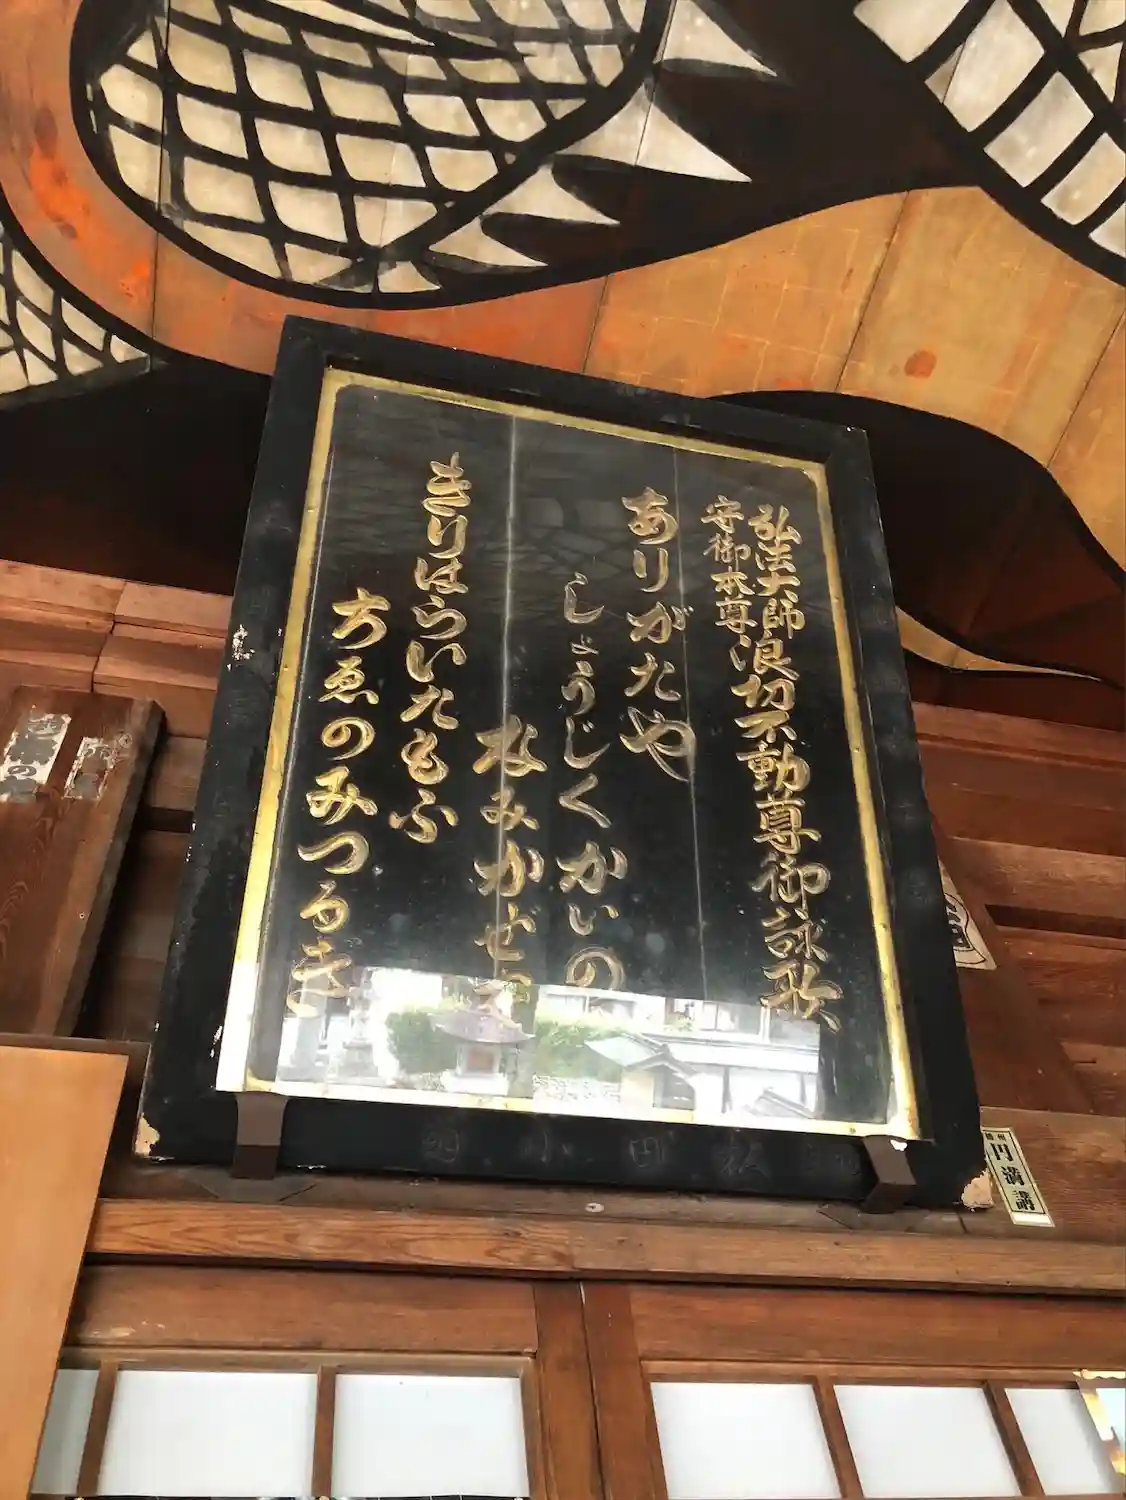 弘法大師
守御本尊
浪切不動尊御詠歌
ありがたや
しょうじくかいの
なみかぜを
きりはらいたもふ
ちゑのみつるぎ
円満講